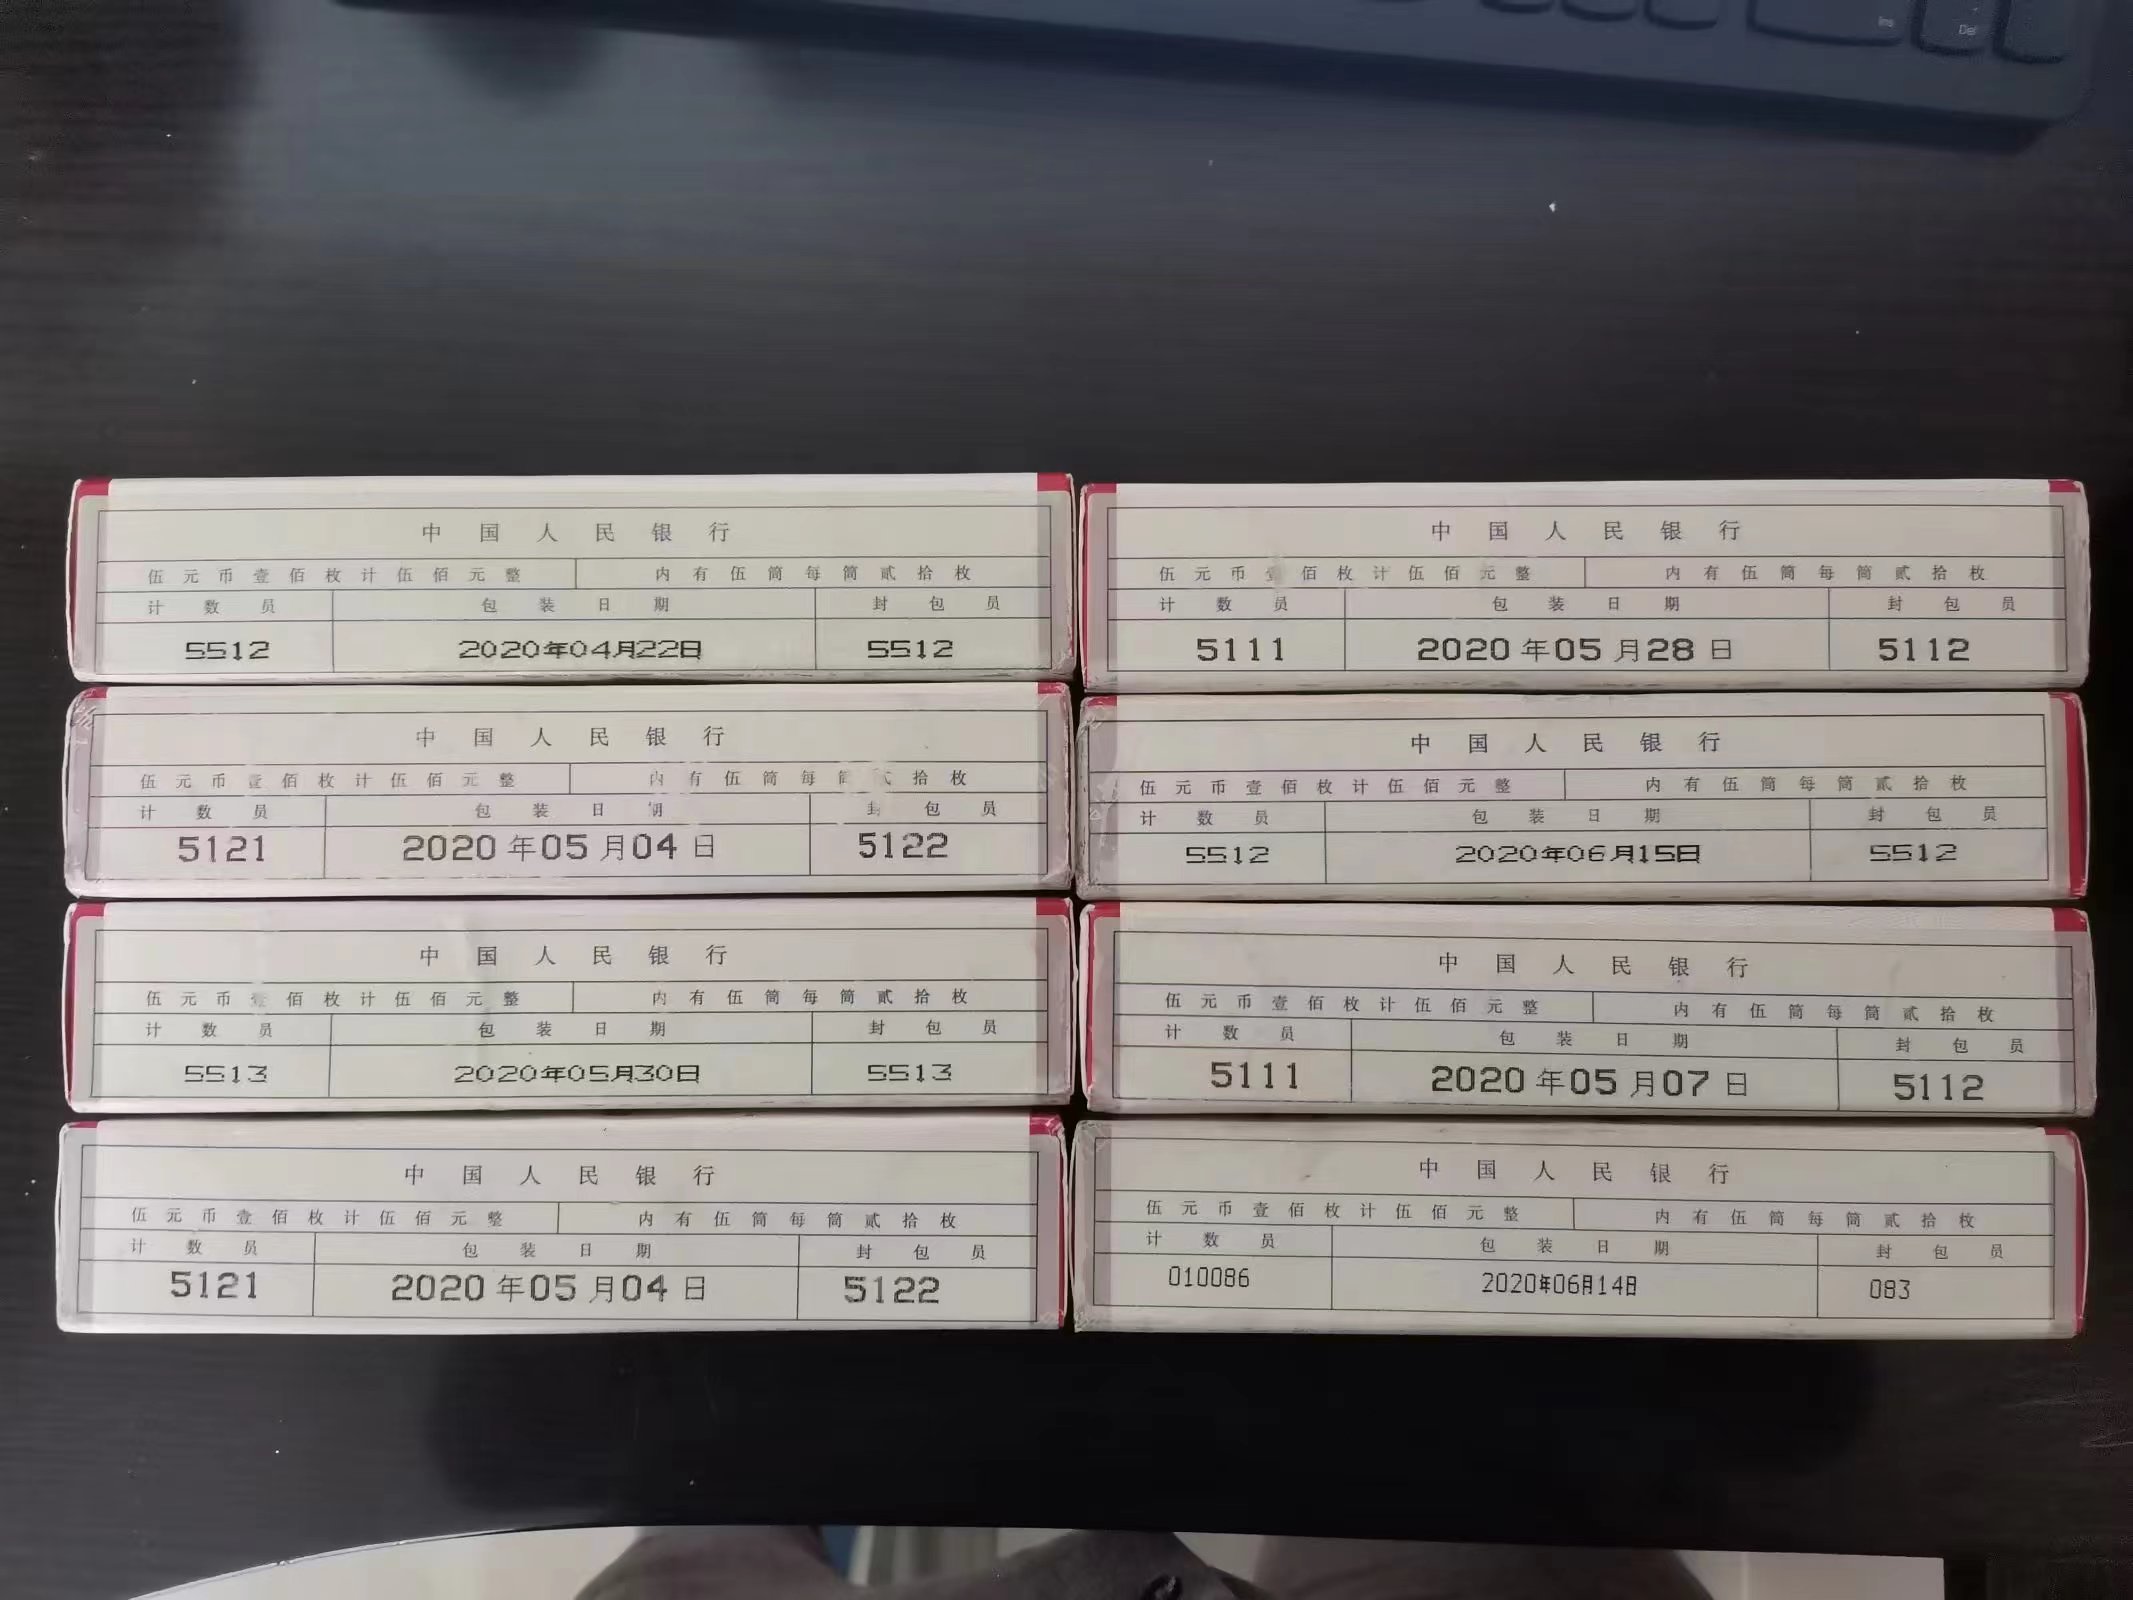 Ins
Del
中国人民银行
伍元币壹佰枚计伍佰元整 内有伍筒每筒贰拾枚
计数员 包装日期 封包员
5512 2020年04月22日 5512
中国人民银行
伍元币壹佰枚计伍佰元整 内有伍筒每筒贰拾枚
计数员 包装日期 封包员
5111 2020年05月28日 5112
中国人民银行
伍元币壹佰枚计伍佰元整 内有伍筒每筒贰拾枚
计数员 包装日期 封包员
5121 2020年05月04日 5122
中国人民银行
伍元币壹佰枚计伍佰元整 内有伍筒每筒贰拾枚
计数员 包装日期 封包员
5512 2020年06月15日 5512
中国人民银行
伍元币壹佰枚计伍佰元整 内有伍筒每筒贰拾枚
计数员 包装日期 封包员
5513 2020年05月30日 5513
中国人民银行
伍元币壹佰枚计伍佰元整 内有伍筒每筒贰拾枚
计数员 包装日期 封包员
5111 2020年05月07日 5112
中国人民银行
伍元币壹佰枚计伍佰元整 内有伍筒每筒贰拾枚
计数员 包装日期 封包员
5121 2020年05月04日 5122
中国人民银行
伍元币壹佰枚计伍佰元整 内有伍筒每筒贰拾枚
计数员 包装日期 封包员
010086 2020年06月14日 083